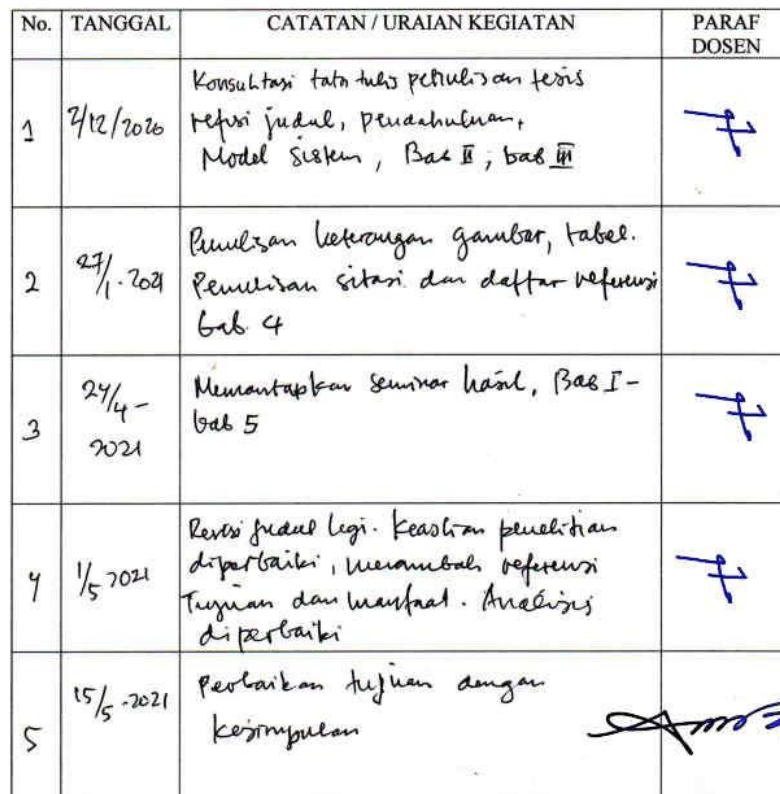 No. TANGGAL CATATAN / URAIAN KEGIATAN PARAF DOSEN
1 2/12/2020 Konsultasi tata tulis penulisan tesis
refisi judul, pendahuluan,
Model Sistem, Bab II, bab III
2 27/1.2021 Penulisan keterangan gambar, tabel.
Penulisan sitasi dan daftar referensi
bab 4
3 24/4-2021 Memantapkan seminar hasil, Bab I -
bab 5
4 1/5 2021 Revisi judul lagi. Keaslian penelitian
diperbaiki, menambah referensi
Tujuan dan manfaat. Analisis
diperbaiki
5 15/5-2021 Perbaikan tujuan dengan
kesimpulan